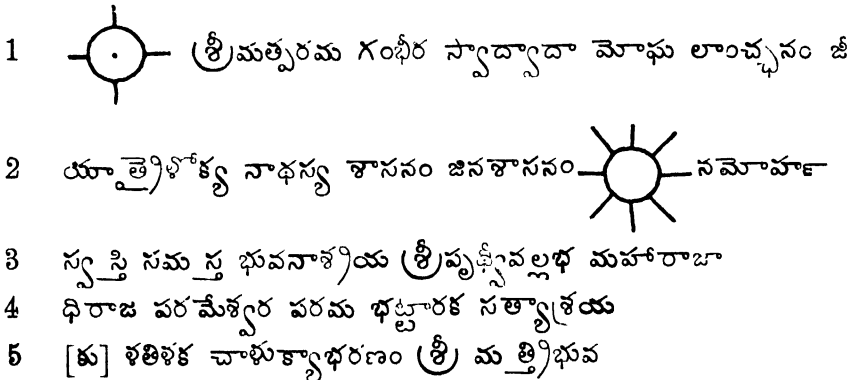 1 శ్రీమత్పరమ గంభీర స్వాద్వాదా మోఘ లాంచ్ఛనం జీ
2 యాత్రైళోక్య నాథస్య శాసనం జినశాసనం నమోహ౯
3 స్వస్తి సమస్త భువనాశ్రయ శ్రీపృథ్వీవల్లభ మహారాజా
4 ధిరాజ పరమేశ్వర పరమ భట్టారక సత్యాశ్రయ
5 [కు] ళతిళక చాళుక్యాభరణం శ్రీ మత్త్రిభువ